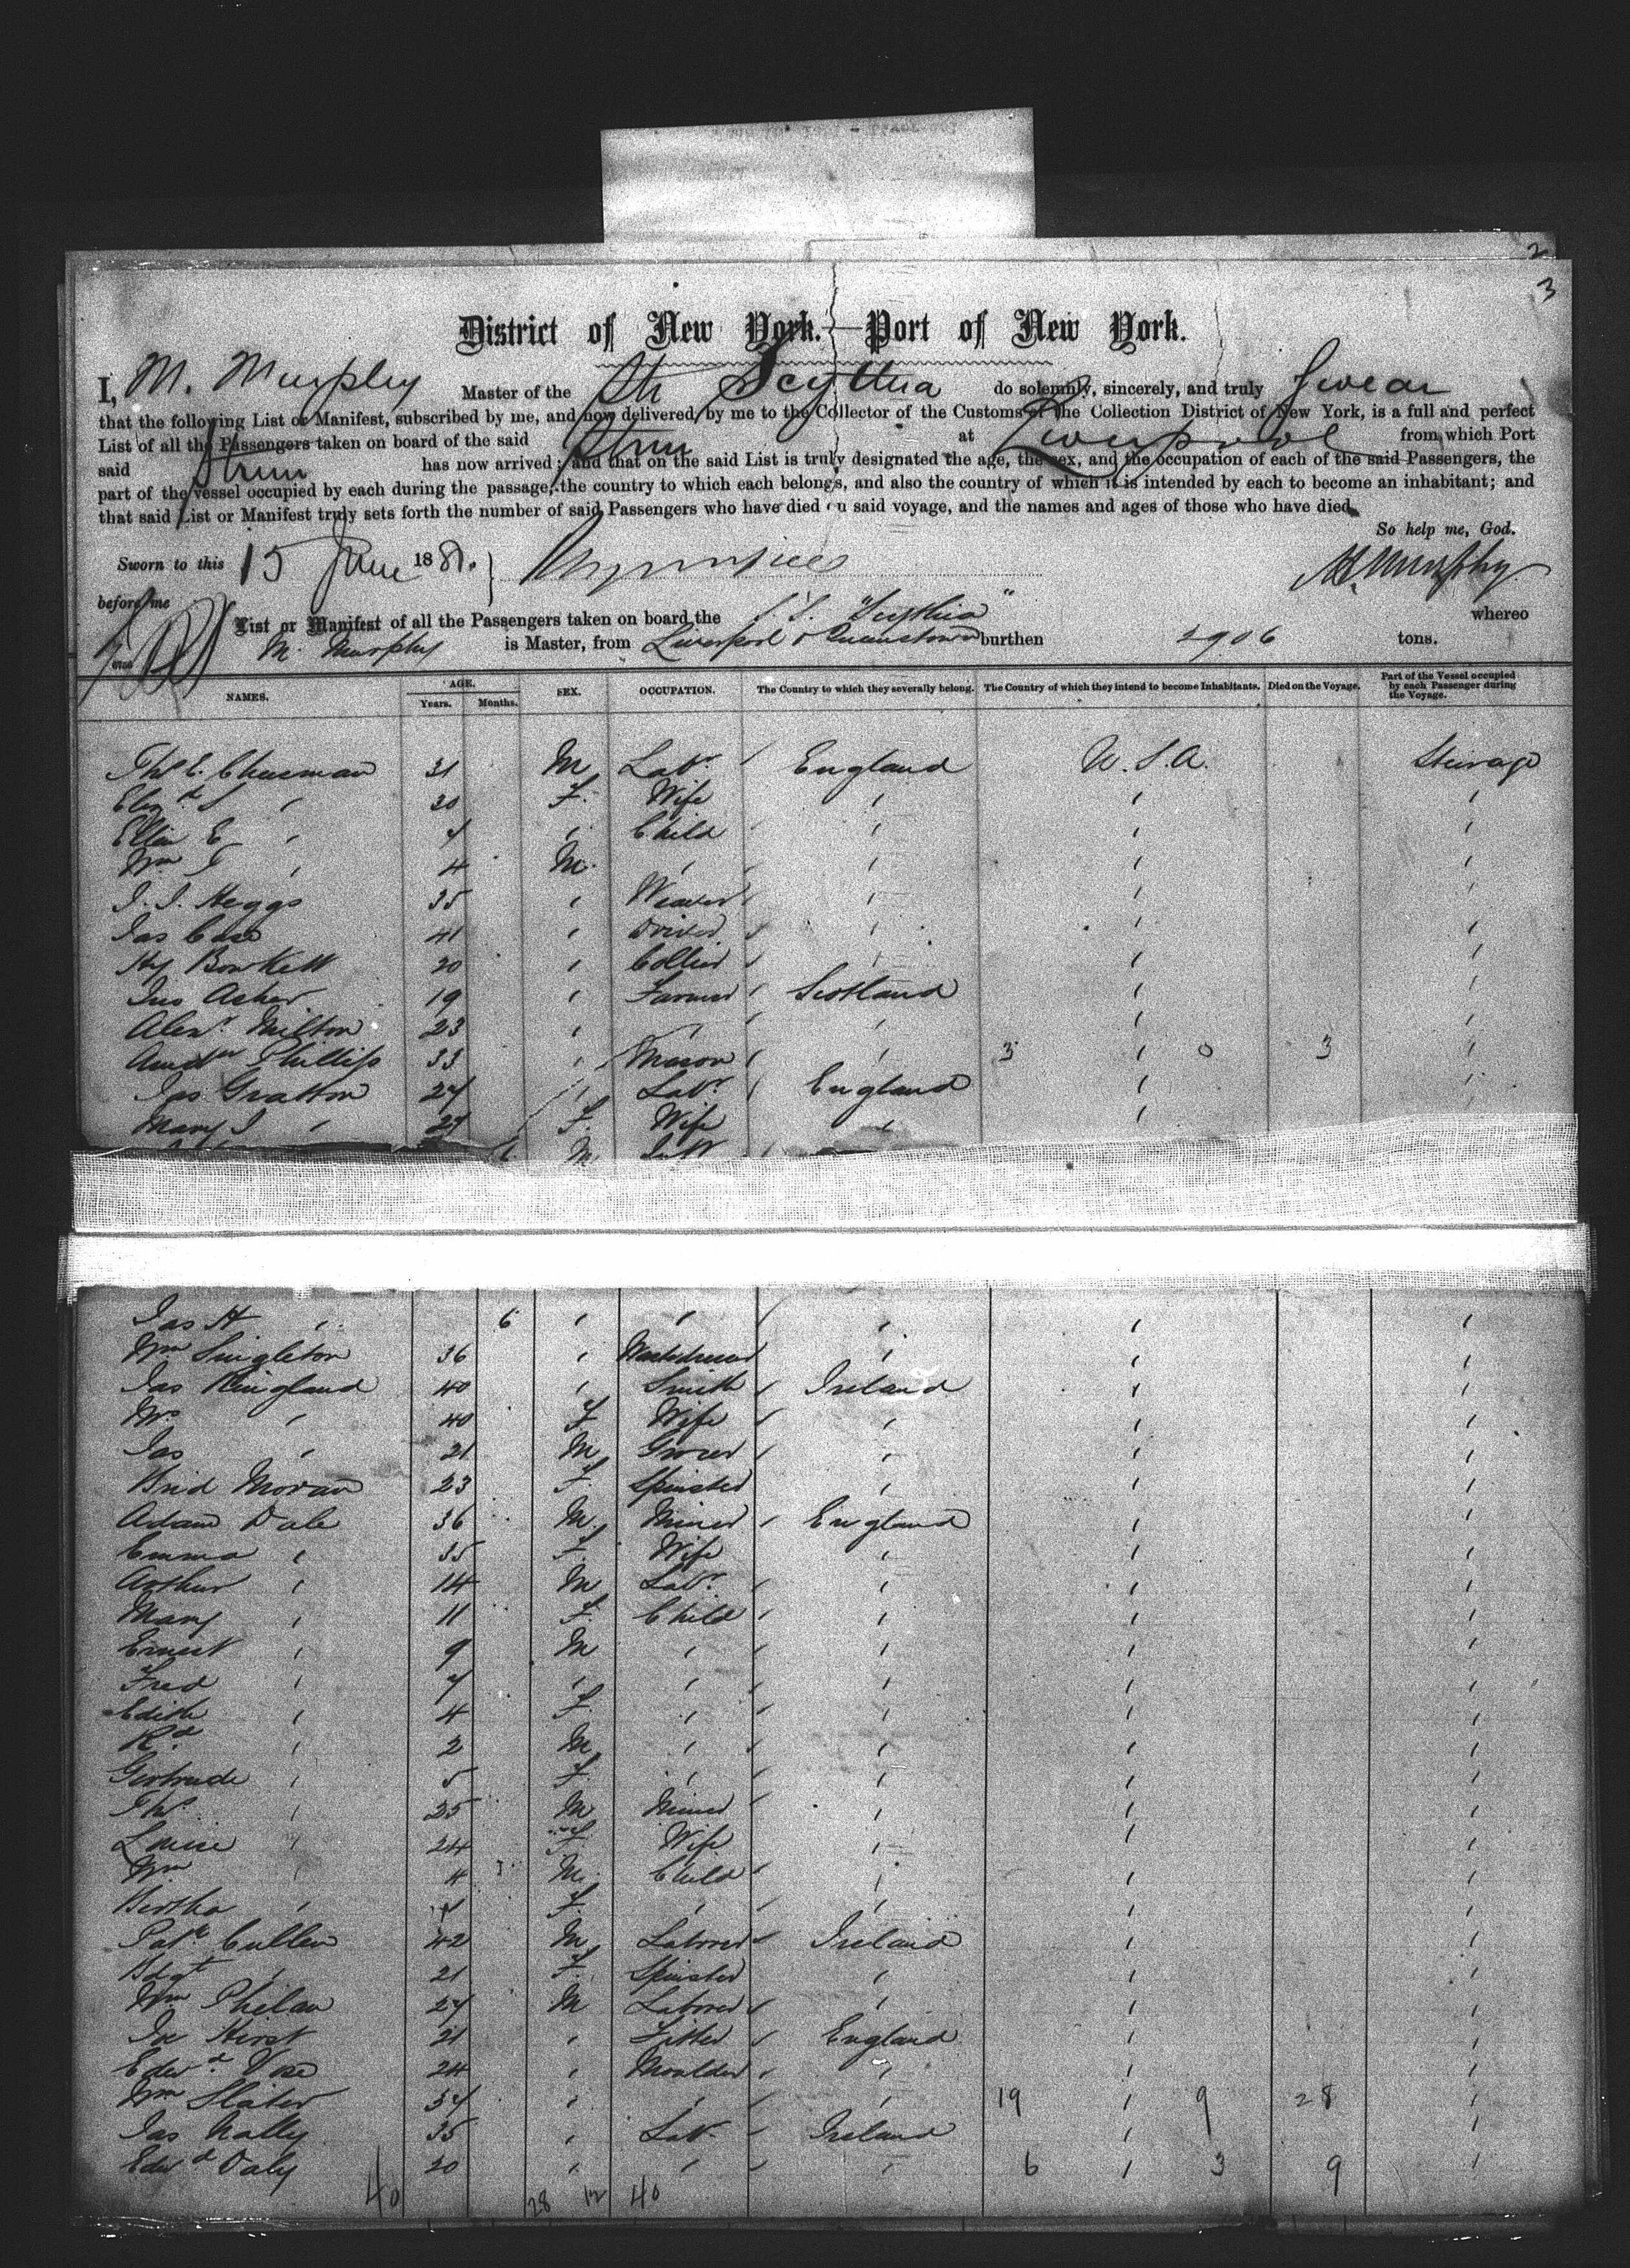 2
3
District of New York.—Port of New York.
I, M. Murphy Master of the Str Scythia do solemnly, sincerely, and truly Swear
that the following List or Manifest, subscribed by me, and now delivered by me to the Collector of the Customs of the Collection District of New York, is a full and perfect
List of all the Passengers taken on board of the said Strm at Liverpool from which Port
said Strm has now arrived; and that on the said List is truly designated the age, the sex, and the occupation of each of the said Passengers, the
part of the vessel occupied by each during the passage, the country to which each belongs, and also the country of which it is intended by each to become an inhabitant; and
that said List or Manifest truly sets forth the number of said Passengers who have died on said voyage, and the names and ages of those who have died.
So help me, God.
Sworn to this 15 June 188 M. Murphy
before me
List or Manifest of all the Passengers taken on board the S.S. "Scythia" whereo
M. Murphy is Master, from Liverpool & Queenstown burthen 2906 tons.
NAMES. AGE. Years. Months. SEX. OCCUPATION. The Country to which they severally belong. The Country of which they intend to become Inhabitants. Died on the Voyage. Part of the Vessel occupied by each Passenger during the Voyage.
Thos E. Chasman 31 M Labr England U.S.A. Steerage
Elizth S " 30 F. Wife " " "
Ellen E " 7 " Child " " "
Wm T " 4 M. " " " "
J. J. Heggs 35 " Weaver " "
Jas Case 41 " Driver " " "
Hy Bowkett 20 " Collier " " "
Jno Asher 19 " Farmer Scotland " "
Alexr Milton 23 " " " " "
Andw Phillips 33 " Mason " 3 " 0 3 "
Jas Gratton 27 " Labr England " "
Mary J " 27 F. Wife " "
M Inft
Jas H " 6 " " " " "
Wm Singleton 36 " " " "
Jas Ringland 40 " Smith Ireland " "
Mrs " 40 F Wife " " "
Jas " 21 M Grocer " " "
Brid Moran 23 F. Spinster " " "
Adam Dale 36 M. Miner England " "
Emma " 35 F. Wife " " "
Arthur " 14 M Labr " " "
Mary " 11 F. Child " " "
Ernest " 9 M " " " "
Fred " 7 " " " " "
Edith " 4 F. " " " "
Rd " 2 M. " " " "
Gertrude " 5 F. " " " "
Thos " 25 M Miner " " "
Louise " 24 F. Wife " " "
Wm " 4 M. Child " " "
Bertha " F. " " " "
Patk Cullen 42 M Laborer Ireland " "
Bdgt " 21 F. Spinster " " "
Wm Phelan 27 M Laborer " " "
Jos Hirst 21 " Fitter England " "
Edwd Vose 24 " Moulder " " "
Wm Slater 37 " " " 19 " 9 28 "
Jas Nally 35 " Labr Ireland " "
Edwd Daly 20 " " " 6 " 3 9 "
40 28 12 40